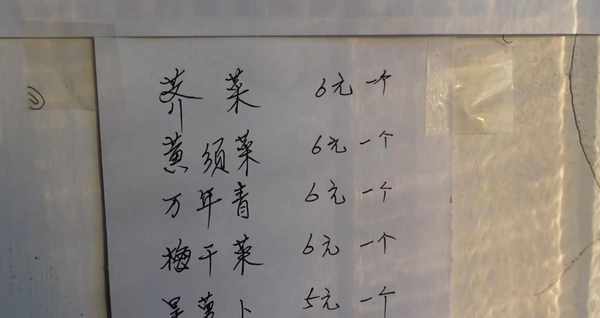 荠菜 6元一个
黄须菜 6元一个
万年青 6元一个
梅干菜 6元一个
萝卜 5元一个